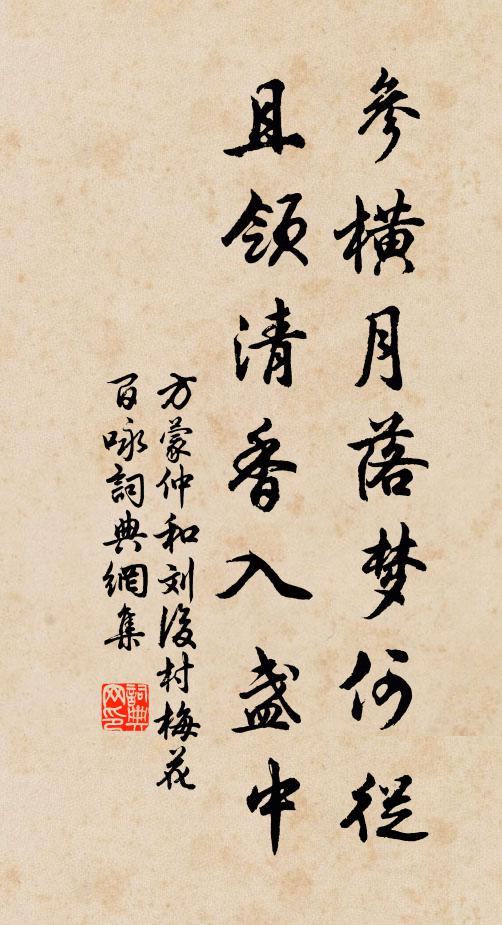 參橫月落梦何從
且领清香入盏中
方蒙仲和刘後村梅花
百咏詞典網集
詞典
网印